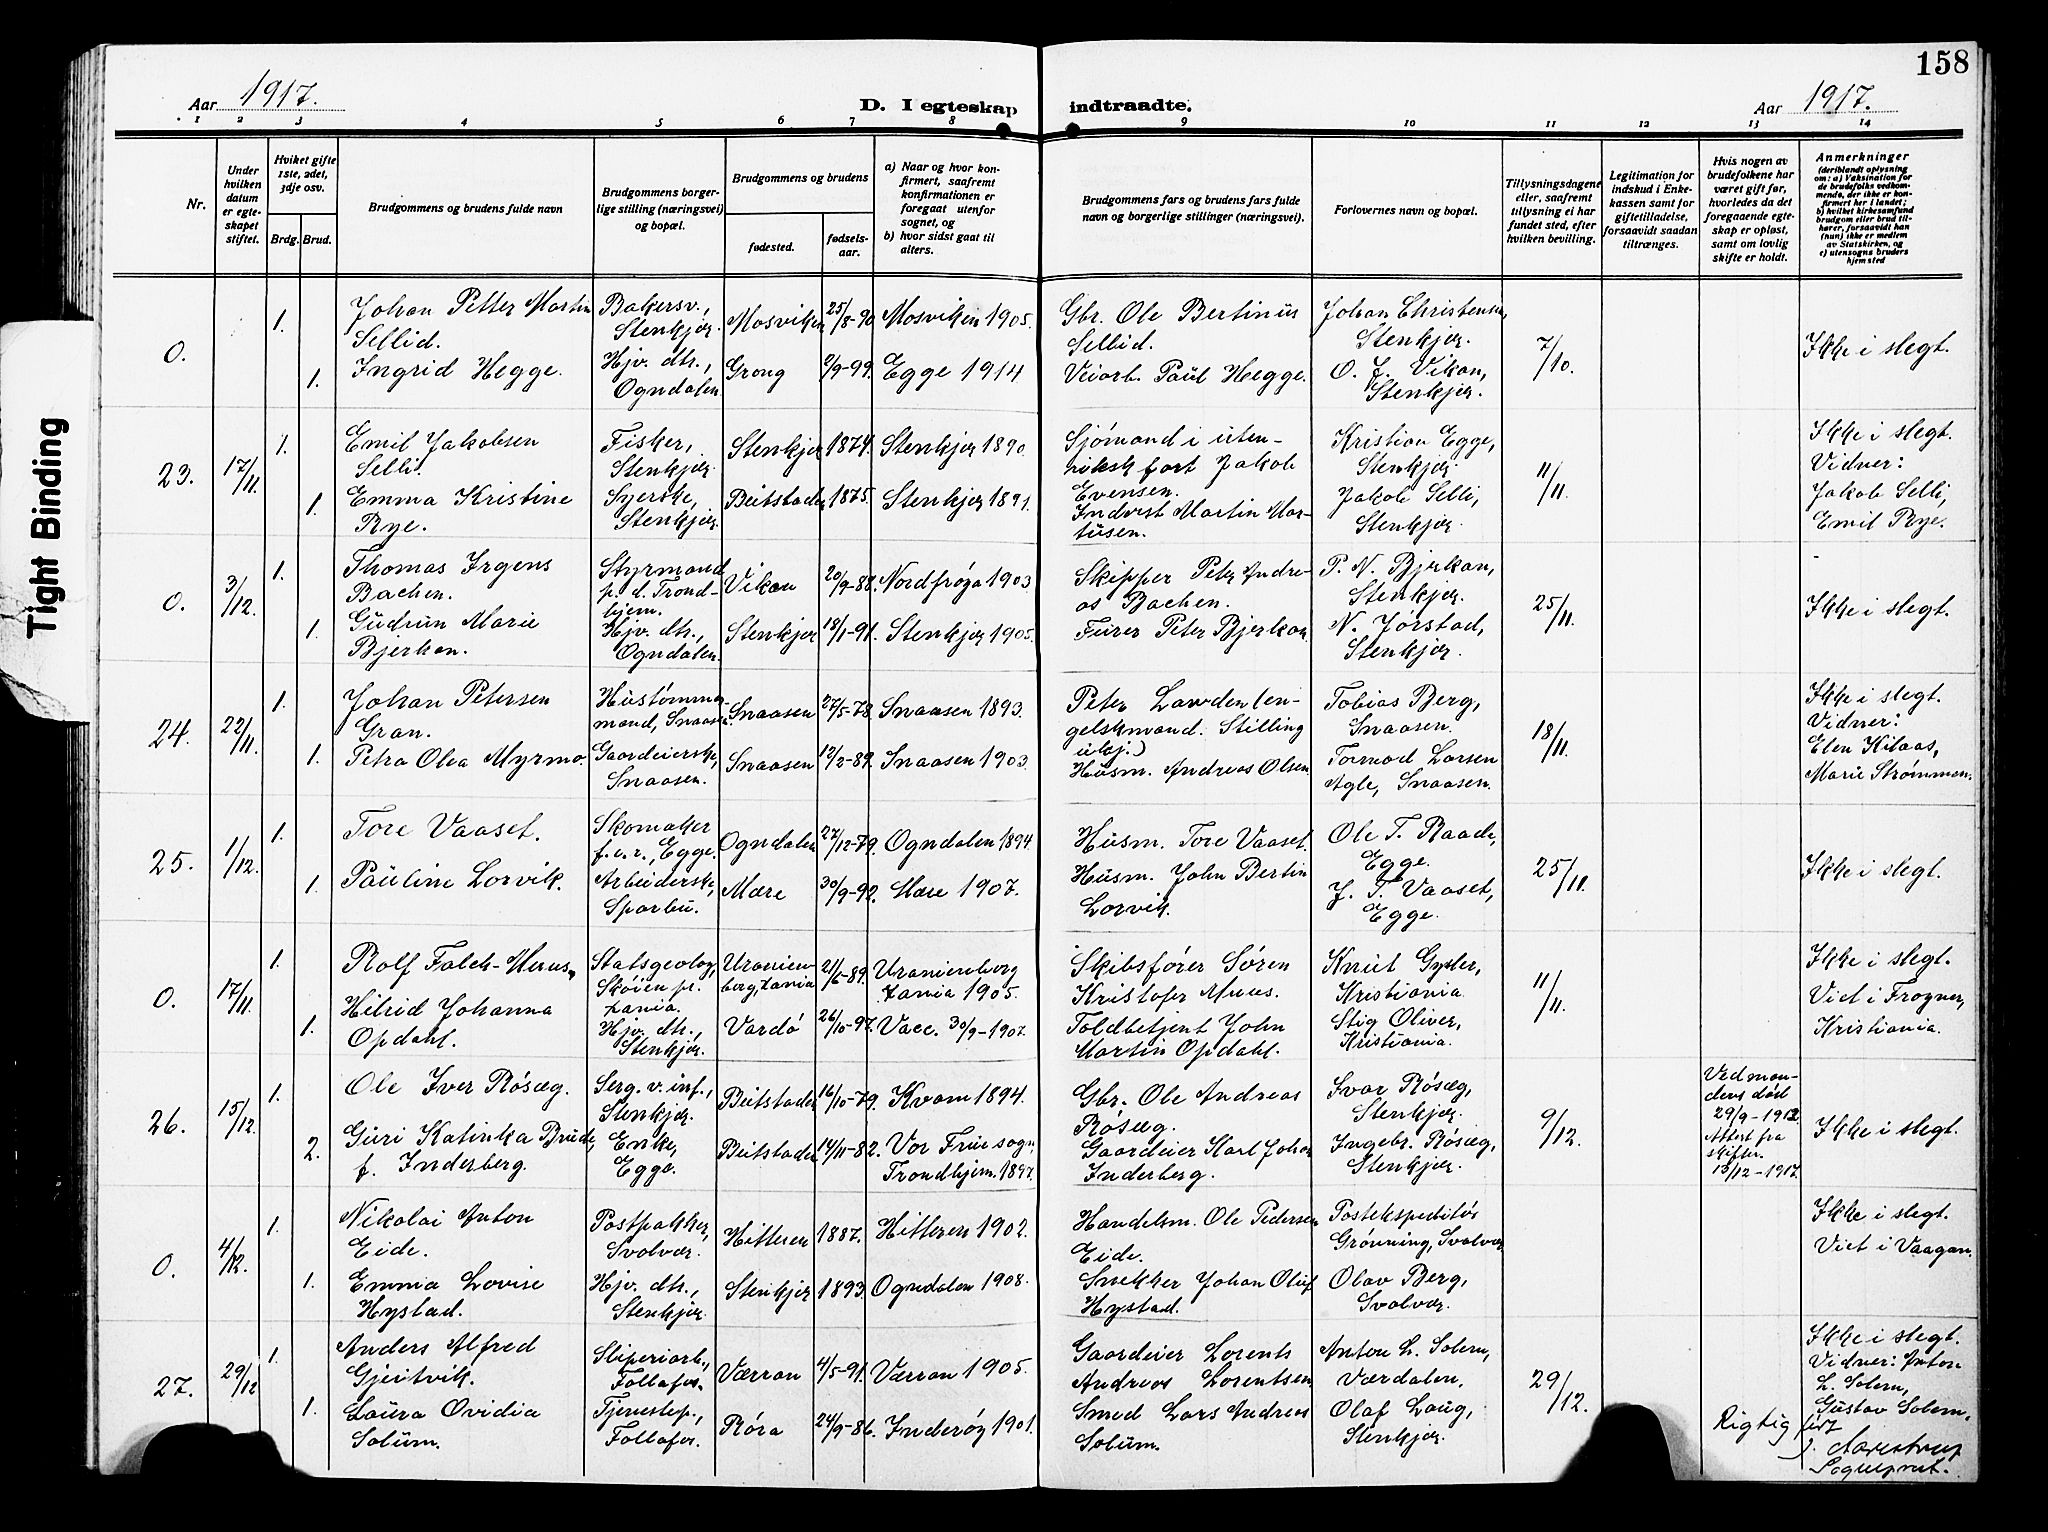 158
Aar 1917.
D. I egteskap indtraadte.
Aar 1917.
1 2 3 4 5 6 7 8 9 10 11 12 13 14
Nr.
Under hvilken datum er egteskapet stiftet.
Hvilket gifte 1ste, 2det, 3dje osv.
Brdg. Brud.
Brudgommens og brudens fulde navn
Brudgommens borgerlige stilling (næringsvei) og bopæl.
Brudgommens og brudens
fødested.
fødselsaar.
a) Naar og hvor konfirmert, saafremt konfirmationen er foregaat utenfor sognet, og
b) hvor sidst gaat til alters.
Brudgommens fars og brudens fars fulde navn og borgerlige stillinger (næringsvei).
Forlovernes navn og bopæl.
Tillysningsdagene eller, saafremt tillysning ei har fundet sted, efter hvilken bevilling.
Legitimation for indskud i Enkekassen samt for giftetilladelse, forsaavidt saadan tiltrænges.
Hvis nogen av brudefolkene har været gift før, hvorledes da det foregaaende egteskap er opløst, samt om lovlig skifte er holdt.
Anmerkninger
(deriblandt oplysning om: a) Vaksination for de brudefolks vedkommende, der ikke er konfirmert her i landet; b) hvilket kirkesamfund brudgom eller brud tilhører, forsaavidt han (hun) ikke er medlem av Statskirken, og c) utensogns bruders hjemsted
0.
1. Johan Petter Martin Sellid. Bakersv., Stenkjær. Mosviken 25/8-90 Mosviken 1905. Gbr. Ole Bertinus Sellid. Johan Christensen, Stenkjær. 7/10. Ikke i slegt.
1. Ingrid Hegge. Hjv. dtr., Ogndalen. Grong 2/9-99. Egge 1914 Veiarb. Paul Hegge. O. J. Vikan, Stenkjær.
23. 17/11.
1. Emil Jakobsen Selli. Fisker, Stenkjær. Stenkjær 1874. Stenkjær 1890. Sjømand i utenriksk fart Jakob Evensen. Kristian Egge, Stenkjær. 11/11. Ikke i slegt. Vidner: Jakob Selli, Emil Rye.
1. Emma Kristine Rye. Syerske, Stenkjær. Beitstaden 1875. Stenkjær 1891. Inderst Martin Martusen. Jakob Selli, Stenkjær.
0. 3/12.
1. Thomas Irgens Bachen. Styrmand p. d. Trondhjem. Vikan 20/9-88. Nordfrøya 1903 Skipper Peter Andreas Bachen. P. N. Bjerkan, Stenkjær. 25/11. Ikke i slegt.
1. Gudrun Marie Bjerkan. Hjv. dtr., Ogndalen. Stenkjær 18/1-91. Stenkjær 1905. Furer Peter Bjerkan. N. Jørstad, Stenkjær.
24. 22/11.
1. Johan Petersen Gran. Hustømmermand, Snaasen. Snaasen 27/5-78. Snaasen 1893. Peter Lawden (engelskmand. Stilling ukj.) Tobias Berg, Snaasen. 18/11. Ikke i slegt. Vidner: Elen Kilaas, Marie Strømmen.
1. Petra Olea Myrmo. Gaardeierske, Snaasen. Snaasen 12/2-89. Snaasen 1903. Husm. Andreas Olsen Tormod Larsen Agle, Snaasen.
25. 1/12.
1. Tore Vaaset. Skomaker f.e.r., Egge. Ogndalen 27/12-79. Ogndalen 1894. Husm. Tore Vaaset. Ole T. Raade, Egge. 25/11. Ikke i slegt.
1. Pauline Lorvik. Arbeiderske, Sparbu. Mære 30/9-92. Mære 1907. Husm. John Bertin Lorvik. J. T. Vaaset, Egge.
0. 17/11.
1. Rolf Falck-Muus, Statsgeolog, Skøien pr. Xania. Uranienberg, Xania 21/6-89. Uranienborg Xania 1905. Skibsfører Søren Kristofer Muus. Knut Gysler, Kristiania. 11/11. Ikke i slegt. Viet i Frogner, Kristiania.
1. Hilrid Johanna Opdahl. Hjv. dtr., Stenkjær. Vardø 26/10-97. Vacc. 30/9-1907. Toldbetjent John Martin Opdahl. Stig Oliver, Kristiania.
26. 15/12.
1. Ole Iver Røsæg. Serg. v. inf., Stenkjær. Beitstaden 16/10-79. Kvam 1894. Gbr. Ole Andreas Røsæg. Ivar Røsæg, Stenkjær. 9/12. Ved mandens død 29/9-1912 Attest fra skifter. 15/12-1917. Ikke i slegt.
2. Guri Katinka Brude, f. Inderberg. Enke, Egge. Beitstaden 14/11-82. Vor Frue sogn, Trondhjem. 1897. Gaardeier Karl Johan Inderberg. Ingebr. Røsæg, Stenkjær.
0. 4/12.
1. Nikolai Anton Eide. Postpakker, Svolvær. Hitteren 1887. Hitteren 1902. Handelsm. Ole Pedersen Eide. Postekspeditør Grønning, Svolvær. Ikke i slegt. Viet i Vaagan.
1. Emma Lovise Hystad. Hjv. dtr., Stenkjær. Stenkjær 1893. Ogndalen 1908. Snekker Johan Oluf Hystad. Olav Berg, Svolvær.
27. 29/12
1. Anders Alfred Gjeitvik. Sliperiarb., Follafos. Værran 4/5-91. Værran 1905. Gaardeier Lorents Andreas Lorentsen Anton L. Solem, Værdalen. 29/12. Ikke i slegt. Vidner: Anton L. Solem, Gustav Solem.
1. Laura Ovidia Solum. Tjenestep., Follafos. Røra 24/9-86. Inderøy 1901. Smed Lars Andreas Solum. Olaf Laug, Stenkjær.
Rigtig ført
J. Aarestrup
Sogneprest.
Tight Binding